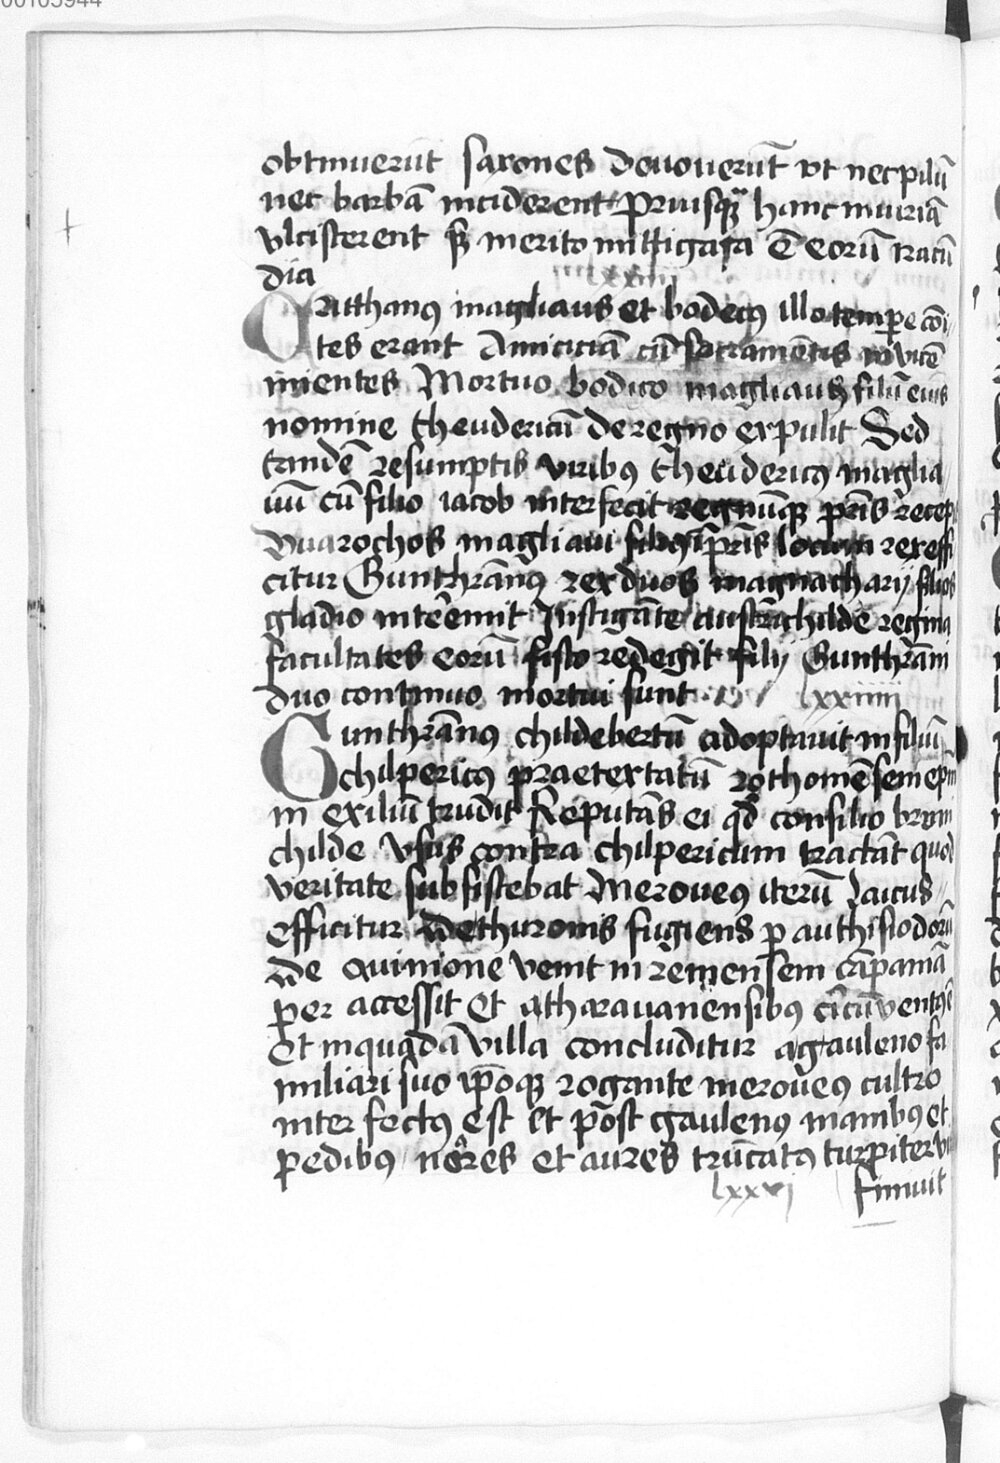 00105944
obtinuerūt saxones devouerūt vt nec pilū
nec barbā inciderent Priusqua hanc iniuriā
vlcisterent sꝫ merito mittigata ē eorū iracū
dia
lxxiiii
Britthanꝰ magliaus et bodecꝰ illo tempore cōi
tes erant Amiciciā cū sacramētis invicē
inientes Mortuo bodico magliauꝰ filiū eius
nomine theudericū de regno expulit Sed
tandē resumptis viribꝰ theudericꝰ maglia
uū cū filio iacob interfecit regnūqꝫ pr̄is recep
Vuarochos magliaui filiꝰ in pr̄is locum rex effi
citur Gunthrānꝰ rex duos magnacharij filios
gladio interemit Instigāte austrachilde regina
facultates eorū fisco redegit filij Gunthrāni
duo continuo mortui sunt lxxiiiii
Gunthrānꝰ childebertū adoptauit in filiū
chilpericꝰ praetextatū rothomēsem epm̄
in exiliū trudit Reputās ei qd̄ consilio bruni
childe vsus contra chilpericum tractāt quod
veritate subsistebat Meroueꝰ iterū laicus
efficitur de thuronis fugiens ꝑ authisiodorū
de quinione venit in remensem cāpaniā
per accessit Et atharauanensibꝰ circūventꝰ ē
Et in quadā villa concluditur a gauleno fa
miliari suo ipōqꝫ rogante meroueꝰ cultro
interfectꝰ est et pōst gaulenꝰ manibꝰ et
pedibꝰ nares et aures trūcatꝰ turpiter vi
lxxvi finiuit